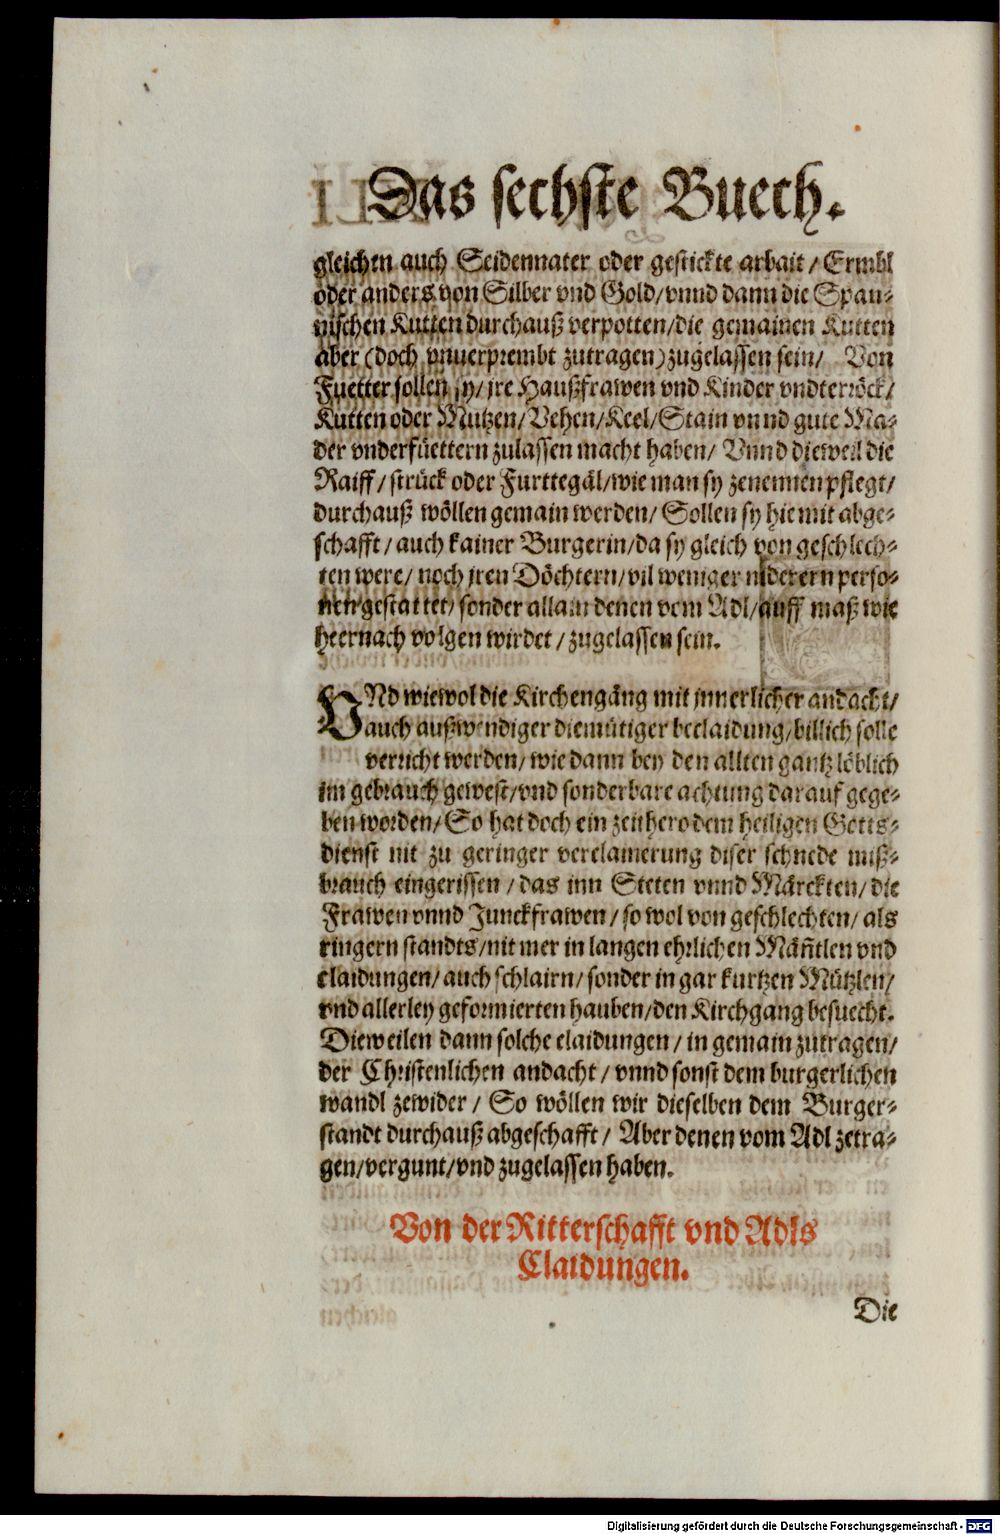 Das sechste Buech.
gleichen auch Seidennater oder gestickte arbait / Ermbl
oder anders von Silber vnd Gold/vnnd dann die Span-
nischen Kutten durchauß verpotten/die gemainen Kutten
aber (doch vnuerprembt zutragen) zugelassen sein/ Von
Fuetter sollen sy/ jre Haußfrawen vnd Kinder vndterröck/
Kutten oder Mutzen/ Vehen/ Keel/ Stain vnnd gute Ma-
der vnderfüettern zulassen macht haben/ Vnnd dieweil die
Raiff / strück oder Furttegäl/wie man sy zenennen pflegt/
durchauß wöllen gemain werden/ Sollen sy hiemit abge-
schafft / auch kainer Burgerin/da sy gleich von geschlech-
ten were/ noch jren Döchtern/ vil weniger niderern perso-
nen gestattet/ sonder allain denen vom Adl/auff maß wie
heernach volgen wirdet / zugelassen sein.
VNd wiewol die Kirchengäng mit jnnerlicher andacht/
auch außwendiger diemütiger beclaidung/billich solle
verricht werden/ wie dann bey den allten gantz löblich
im gebrauch gewest/vnd sonderbare achtung darauf gege-
ben worden/ So hat doch ein zeithero dem heiligen Gotts-
dienst nit zu geringer verclainerung diser schnede miß-
brauch eingerissen / das inn Steten vnnd Märckten/ die
Frawen vnnd Junckfrawen / so wol von geschlechten/ als
ringern standts/nit mer in langen ehrlichen Mäñtlen vnd
claidungen/ auch schlairn/ sonder in gar kurtzen Mützlen/
vnd allerley geformierten hauben/den Kirchgang besuecht.
Dieweilen dann solche claidungen / in gemain zutragen/
der Christenlichen andacht / vnnd sonst dem burgerlichen
wandl zewider / So wöllen wir dieselben dem Burger-
standt durchauß abgeschafft / Aber denen vom Adl zetra-
gen/vergunt/vnd zugelassen haben.
Von der Ritterschafft vnd Adls
Claidungen.
Die
Digitalisierung gefördert durch die Deutsche Forschungsgemeinschaft - DFG